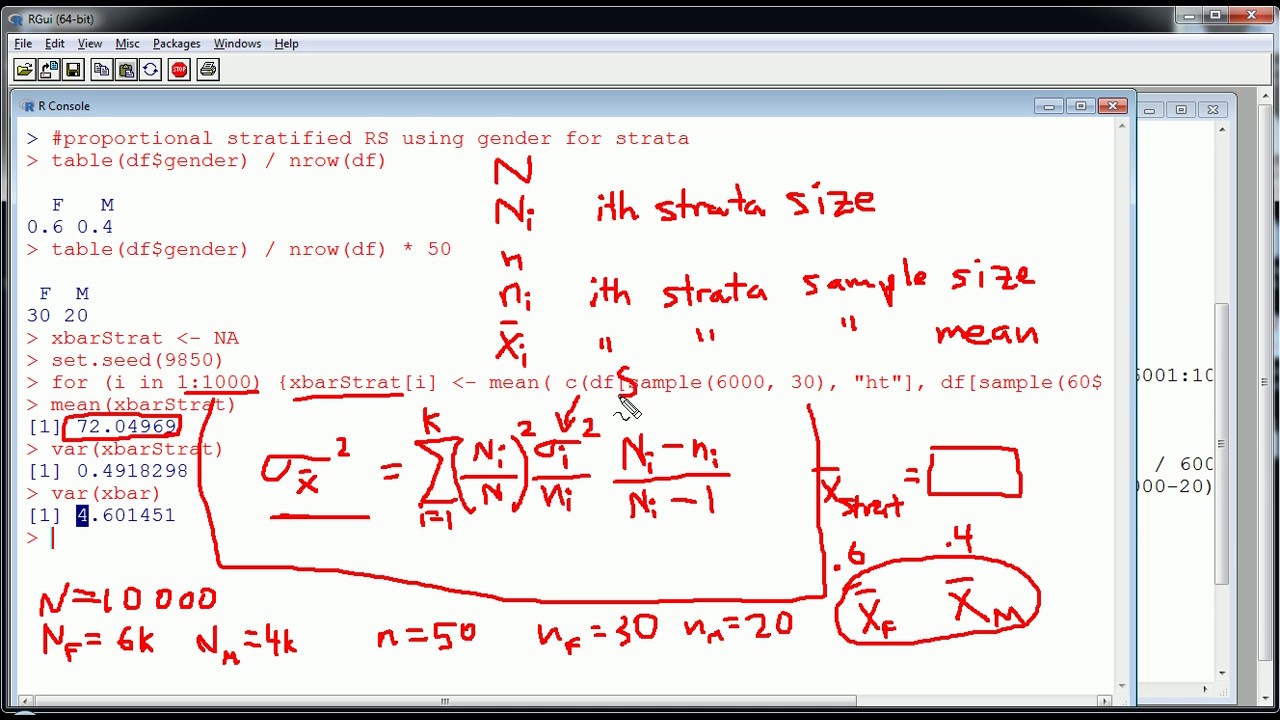 RGui (64-bit)
File Edit View Misc Packages Windows Help
STOP
R Console
> #proportional stratified RS using gender for strata
> table(df$gender) / nrow(df)
F M
0.6 0.4
> table(df$gender) / nrow(df) * 50
F M
30 20
> xbarStrat <- NA
> set.seed(9850)
> for (i in 1:1000) {xbarStrat[i] <- mean( c(df[sample(6000, 30), "ht"], df[sample(60$
> mean(xbarStrat)
[1] 72.04969
> var(xbarStrat)
[1] 0.4918298
> var(xbar)
[1] 4.601451
>
N
Nᵢ ith strata size
n
nᵢ ith strata sample size
x̄ᵢ " " " mean
S
σx̄² = Σᵢ₌₁ᵏ (Nᵢ/N)² σᵢ²/nᵢ Nᵢ-nᵢ/Nᵢ-1
x̄strat =
.6 .4
x̄F x̄M
N=10000
NF=6k NM=4k n=50 nF=30 nM=20
6001:10
/ 600
000-20)